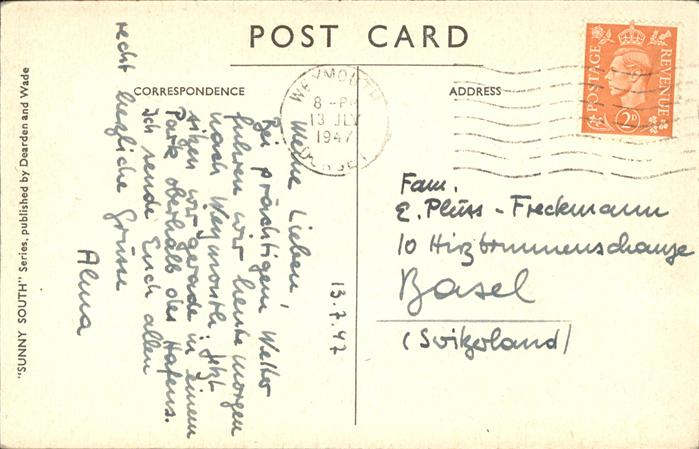 POST CARD
CORRESPONDENCE
ADDRESS
WEYMOUTH
8 - PM
13 JLY
1947
DORSET
POSTAGE
REVENUE
2D
13.7.47
Meine Lieben!
Bei prächtigem Wetter
fuhren wir heute morgen
nach Weymouth; jetzt
sitzen wir gerade in einem
Park oberhalb des Hafens.
Ich sende Euch allen
recht herzliche Grüsse
Alma
Fam.
E. Plüss - Freckmann
10 Hirzbrunnenschanze
Basel
(Svitzerland)
"SUNNY SOUTH" Series, published by Dearden and Wade